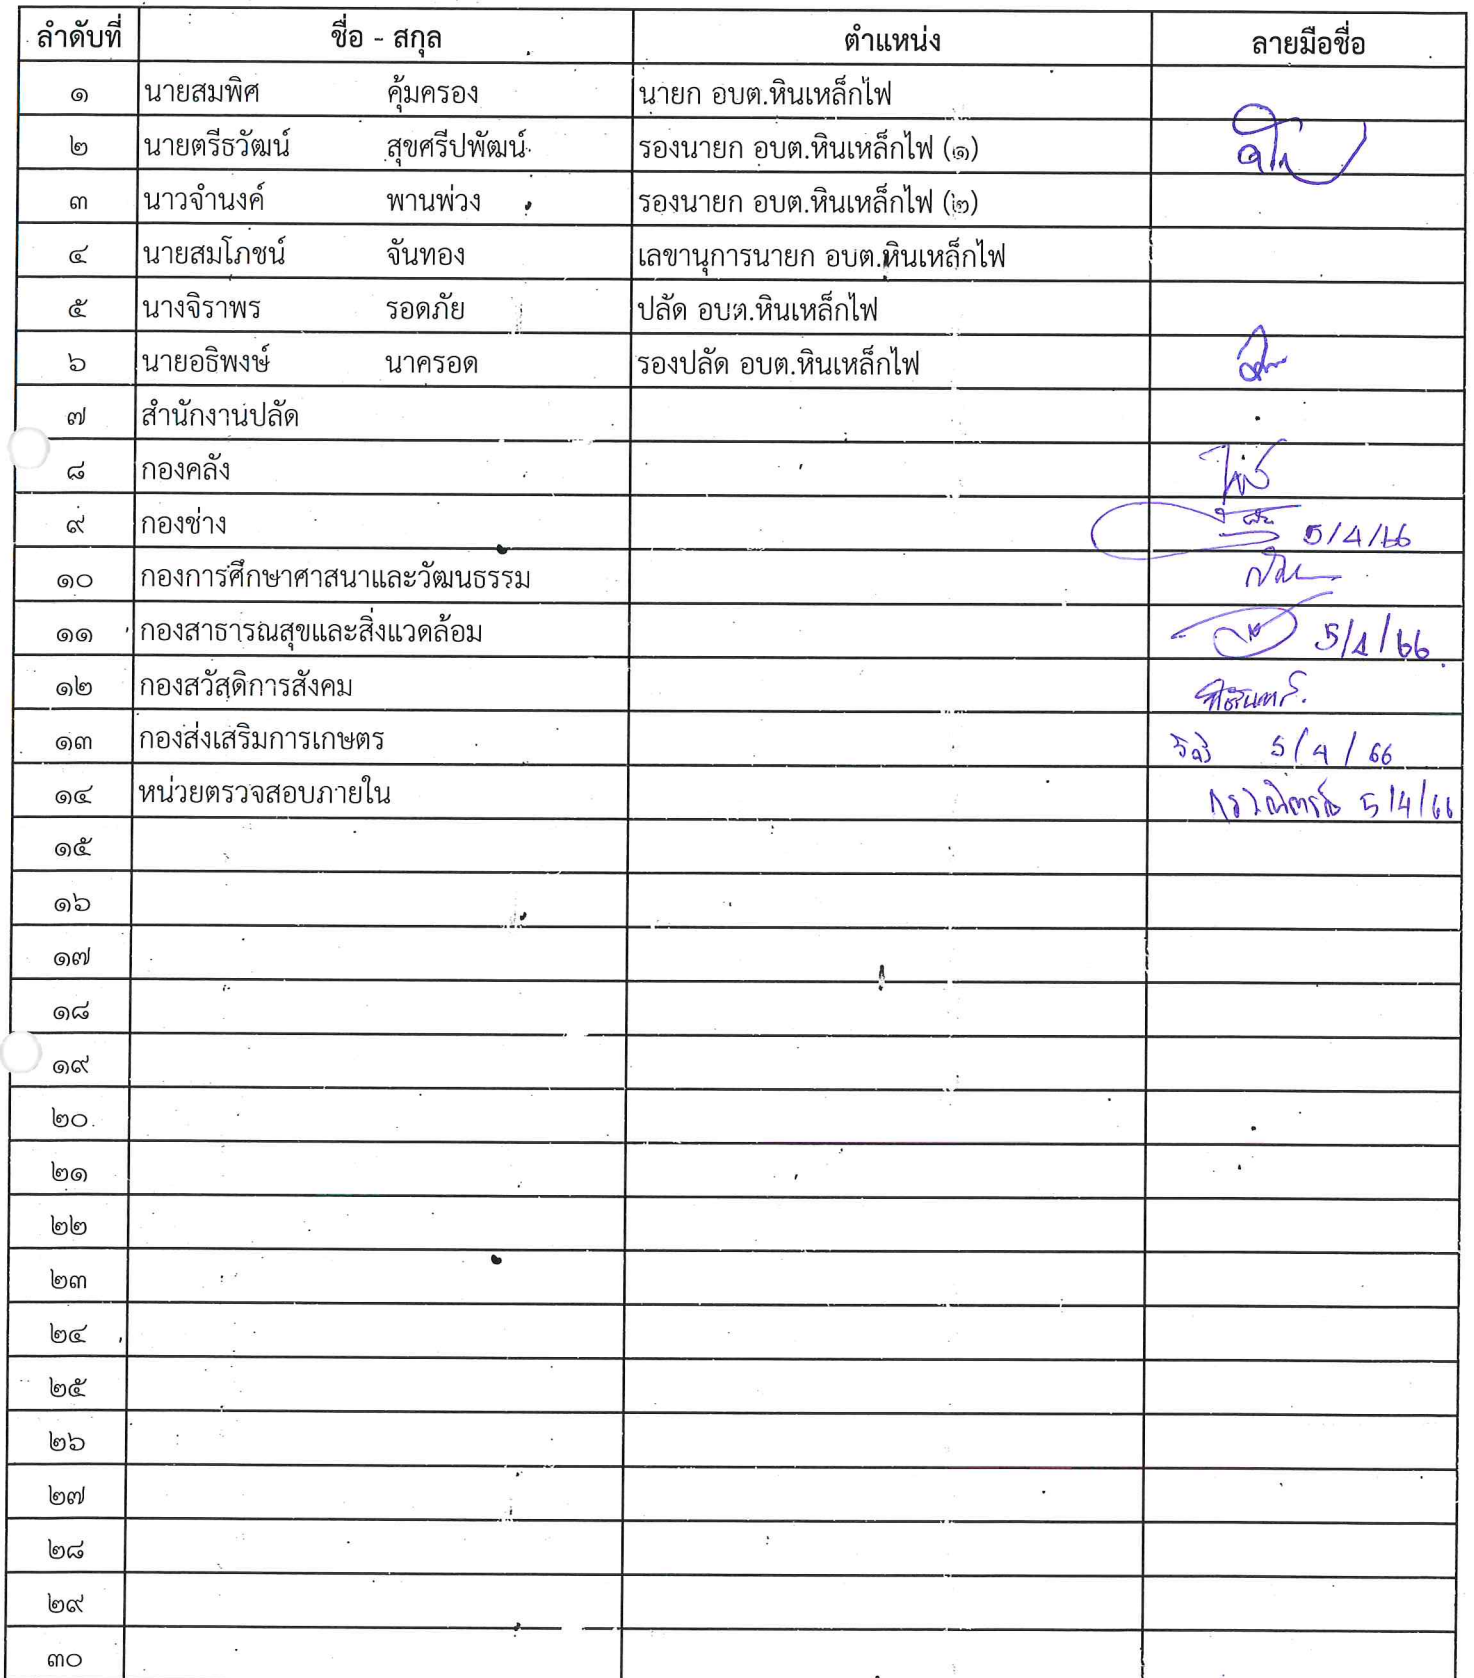 ลำดับที่ ชื่อ - สกุล ตำแหน่ง ลายมือชื่อ
๑ นายสมพิศ คุ้มครอง นายก อบต.หินเหล็กไฟ
๒ นายตรีธวัฒน์ สุขศรีปพัฒน์ รองนายก อบต.หินเหล็กไฟ (๑)
๓ นาวจำนงค์ พานพ่วง รองนายก อบต.หินเหล็กไฟ (๒)
๔ นายสมโภชน์ จันทอง เลขานุการนายก อบต.หินเหล็กไฟ
๕ นางจิราพร รอดภัย ปลัด อบต.หินเหล็กไฟ
๖ นายอธิพงษ์ นาครอด รองปลัด อบต.หินเหล็กไฟ
๗ สำนักงานปลัด
๘ กองคลัง
๙ กองช่าง 5/4/66
๑๐ กองการศึกษาศาสนาและวัฒนธรรม
๑๑ กองสาธารณสุขและสิ่งแวดล้อม 5/4/66
๑๒ กองสวัสดิการสังคม
๑๓ กองส่งเสริมการเกษตร 5/4/66
๑๔ หน่วยตรวจสอบภายใน 5/4/66
๑๕
๑๖
๑๗
๑๘
๑๙
๒๐
๒๑
๒๒
๒๓
๒๔
๒๕
๒๖
๒๗
๒๘
๒๙
๓๐